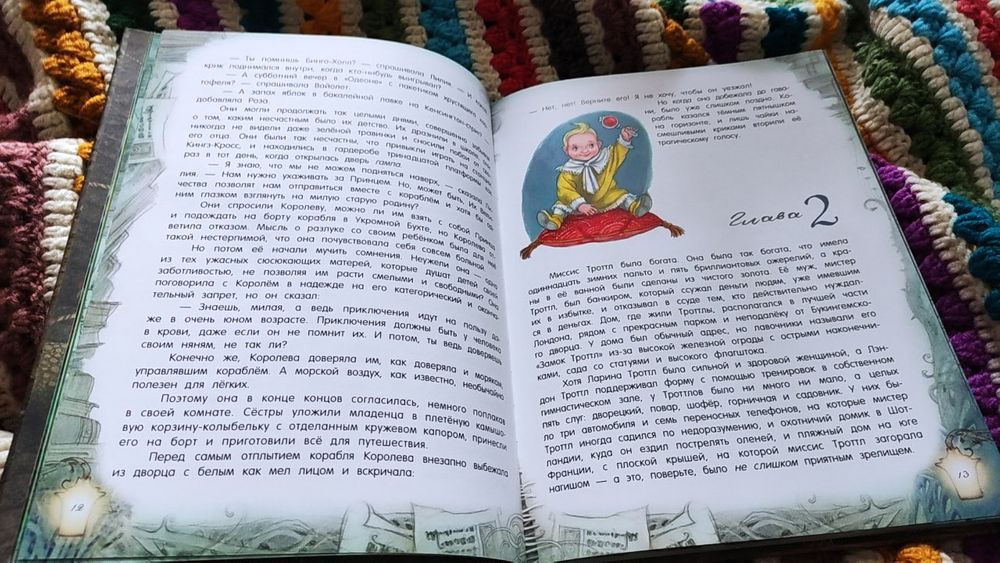 — Ты помнишь Бинго-Холл? — спрашивала Лилия. — И
крик поднимался внутри, когда кто-нибудь выигрывал?
— А субботний вечер в «Одеоне» с пакетиком хрустящего
тофеля? — спрашивала Вайолет.
— А запах яблок в бакалейной лавке на Кенсингтон-стрит?
добавляла Роза.
Они могли продолжать так целыми днями, совершенно забывая
о том, каким несчастным было их детство. Их дразнили в школе,
никогда не видели даже зелёной травинки и сносили побои
его отца. Они были так несчастны, что привыкли играть на станции
Кингз-Кросс, и находились в гардеробе тринадцатой платформы как
раз в тот день, когда открылась дверь гампа.
— Я знаю, что мы не можем подняться наверх, — сказала Ли-
лия. — Нам нужно ухаживать за Принцем. Но, может быть, Их Вели-
чества позволят нам отправиться вместе с кораблём и хотя бы од-
ним глазком взглянуть на милую старую родину?
Они спросили Королеву, можно ли им взять с собой Принца
и подождать на борту корабля в Укромной Бухте, но Королева от-
ветила отказом. Мысль о разлуке со своим ребёнком была для неё
такой нестерпимой, что она почувствовала себя совсем больной.
Но потом её начали мучить сомнения. Неужели она — одна
из тех ужасных сюсюкающих матерей, которые душат детей своей
заботливостью, не позволяя им расти смелыми и свободными? Она
поговорила с Королём в надежде на его категорический и оконча-
тельный запрет, но он сказал:
— Знаешь, милая, а ведь приключения идут на пользу да-
же в очень юном возрасте. Приключения должны быть у человека
в крови, даже если он не помнит их. И потом, ты ведь доверяешь
своим няням, не так ли?
Конечно же, Королева доверяла им, как доверяла и морякам,
управлявшим кораблём. А морской воздух, как известно, необычайно
полезен для лёгких.
Поэтому она в конце концов согласилась, немного поплакав
в своей комнате. Сёстры уложили младенца в плетёную камышо-
вую корзину-колыбельку с отделанным кружевом капором, принесли
его на борт и приготовили всё для путешествия.
Перед самым отплытием корабля Королева внезапно выбежала
из дворца с белым как мел лицом и вскричала:
12
— Нет, нет! Верните его! Я не хочу, чтобы он уезжал!
Но когда она добежала до гава-
ни, было уже слишком поздно. Ко-
рабль казался тёмным пятнышком
на горизонте, и лишь чайки на-
смешливыми криками вторили её
трагическому голосу.
Глава 2
Миссис Троттл была богата. Она была так богата, что имела
одиннадцать зимних пальто и пять бриллиантовых ожерелий, а кра-
ны в её ванной были сделаны из чистого золота. Её муж, мистер
Троттл, был банкиром, который ссужал деньги людям, уже имевшим
их в избытке, и отказывал в ссуде тем, кто действительно нуждал-
ся в деньгах. Дом, где жили Троттлы, располагался в лучшей части
Лондона, рядом с прекрасным парком и неподалёку от Букингемско-
го дворца. У дома был обычный адрес, но лавочники называли его
«Замок Троттл» из-за высокой железной ограды с острыми наконечни-
ками, сада со статуями и высокого флагштока.
Хотя Ларина Троттл была сильной и здоровой женщиной, а Лэн-
дон Троттл поддерживал форму с помощью тренировок в собственном
гимнастическом зале, у Троттлов было ни много ни мало, а целых
пять слуг: дворецкий, повар, шофёр, горничная и садовник. У них бы-
ло три автомобиля и семь переносных телефонов, на которые мистер
Троттл иногда садился по недоразумению, и охотничий домик в Шот-
ландии, куда он ездил пострелять оленей, и пляжный дом на юге
Франции, с плоской крышей, на которой миссис Троттл загорала
нагишом — а это, поверьте, было не слишком приятным зрелищем.
13